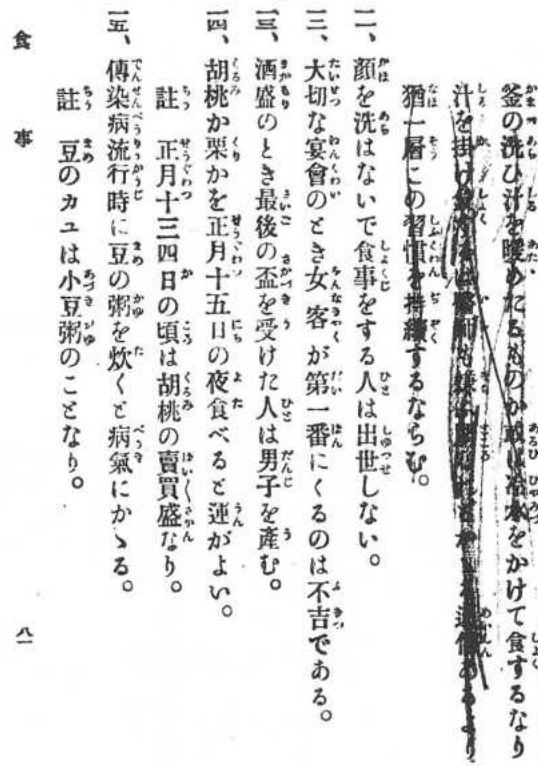 釜の洗ひ汁を暖めたるものか或は冷水をかけて食するなり
汁を掛け
猶一層この習慣を持續するならむ。
二、顔を洗はないで食事をする人は出世しない。
三、大切な宴會のとき女客が第一番にくるのは不吉である。
三、酒盛のとき最後の盃を受けた人は男子を產む。
四、胡桃か栗かを正月十五日の夜食べると運がよい。
註 正月十三四日の頃は胡桃の賣買盛なり。
五、傳染病流行時に豆の粥を炊くと病氣にかゝる。
註 豆のカユは小豆粥のことなり。
食事
八一